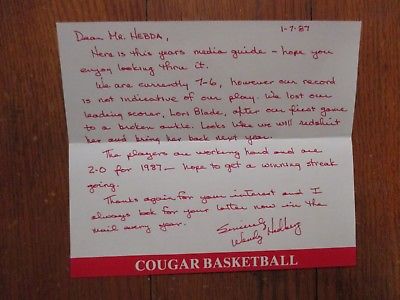 1-7-87
Dear Mr. HEBDA,
Here is this years media guide - hope you
enjoy looking thru it.
We are currently 7-6, however our record
is not indicative of our play. We lost our
leading scorer, Lori Blade, after our first game
to a broken ankle. Looks like we will redshirt
her and bring her back next year.
The players are working hard and are
2-0 for 1987 - hope to get a winning streak
going.
Thanks again for your interest and I
always look for your letter now in the
mail every year.
Sincerely,
Wendy Hedberg
COUGAR BASKETBALL